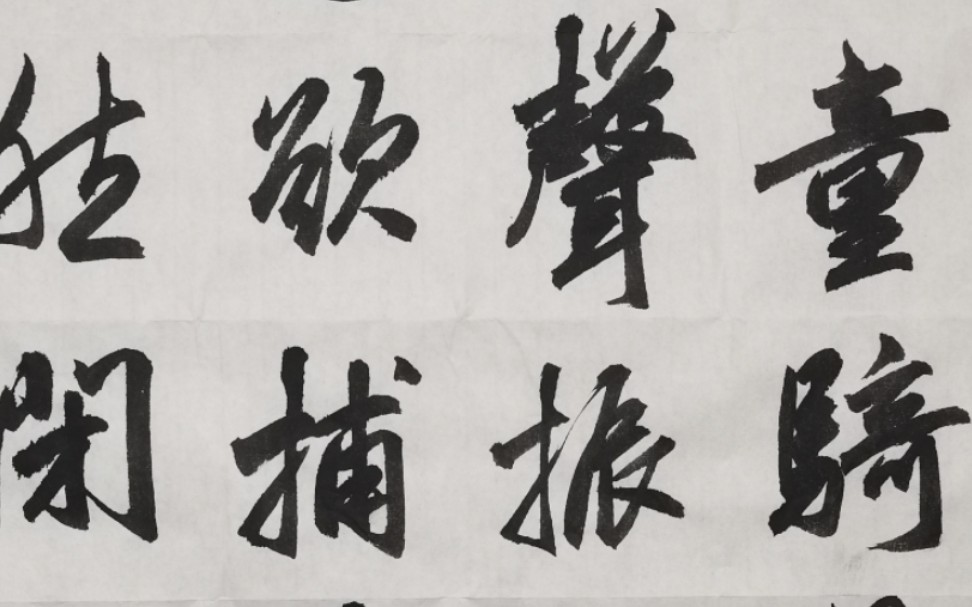 童騎
聲振
欲捕
然閉